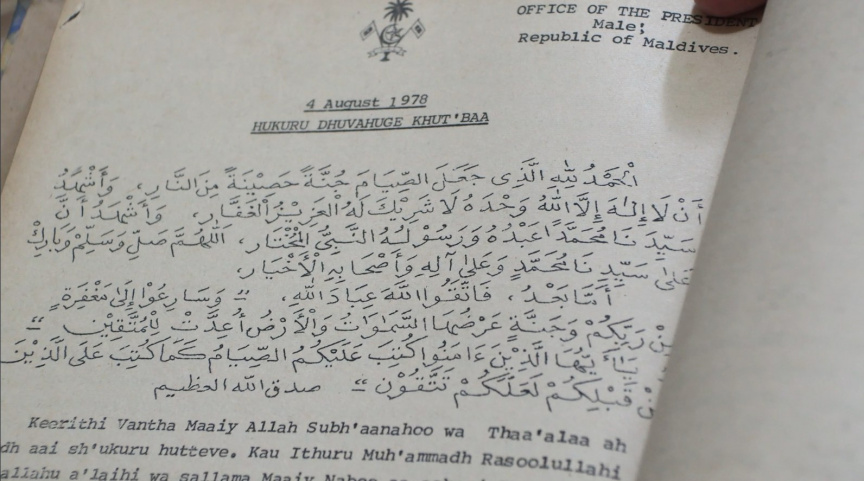 OFFICE OF THE PRESIDENT
Male;
Republic of Maldives.
4 August 1978
HUKURU DHUVAHUGE KHUT'BAA
اَلْحَمْدُ لِلّٰهِ الَّذِى جَعَلَ الصِّيَامَ جُنَّةً حَصِيْنَةً مِنَ النَّارِ، وَأَشْهَدُ
أَنْ لَا إِلٰهَ إِلَّا اللهُ وَحْدَهُ لَا شَرِيْكَ لَهُ الْعَزِيْزُ الْغَفَّارِ، وَأَشْهَدُ أَنَّ
سَيِّدَنَا مُحَمَّدًا عَبْدُهُ وَرَسُوْلُهُ النَّبِيُّ الْمُخْتَارِ، اَللّٰهُمَّ صَلِّ وَسَلِّمْ وَبَارِكْ
عَلٰى سَيِّدِنَا مُحَمَّدٍ وَعَلٰى آلِهِ وَأَصْحَابِهِ الْأَخْيَارِ.
أَمَّا بَعْدُ، فَاتَّقُوا اللهَ عِبَادَ اللهِ، " وَسَارِعُوْا إِلَىٰ مَغْفِرَةٍ
مِنْ رَبِّكُمْ وَجَنَّةٍ عَرْضُهَا السَّمٰوَاتُ وَالْأَرْضُ أُعِدَّتْ لِلْمُتَّقِيْنَ "
يَاأَيُّهَا الَّذِيْنَ ءَامَنُوا كُتِبَ عَلَيْكُمُ الصِّيَامُ كَمَا كُتِبَ عَلَى الَّذِيْنَ
مِنْ قَبْلِكُمْ لَعَلَّكُمْ تَتَّقُوْنَ " صدق الله العظيم
Keerithi Vantha Maaiy Allah Subh'aanahoo wa Thaa'alaa ah
dh aai sh'ukuru hutteve. Kau Ithuru Muh'ammadh Rasoolullahi
allahu a'laihi wa sallama Maaiy